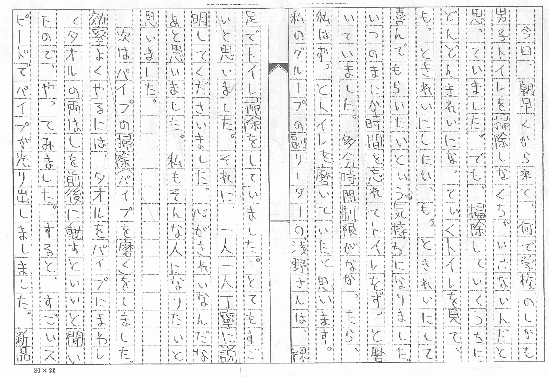 今日、朝早くから来て、何で学校のしかも
男子トイレを掃除しなくちゃいけないんだと
思っていました。でも、掃除していくうちに
どんどんきれいになっていくトイレを見て、
も、ときれいにしたい、もっときれいにして
喜んでもらいたいという気持ちになりました。
いつのまにか時間を忘れてトイレをずっと磨
いていました。多分時間制限がなかったら、
私はずっとトイレを磨いていたと思います。
私のグループの副リーターの浅野さんは、裸
足でトイレ掃除をしていました。とてもすご
いと思いました。それに、一人一人丁寧に説
明してくださいました。心がきれいなんだな
あと思いました。私もそんな人になりたいと
思いました。
次はパイプの掃除(パイプを磨く)をしました。
効率よくやるには、タオルをパイプにまわし
てタオルの両はしを前後に動すといいと聞い
たので、やってみました。すると、すごいス
ピードでパイプが光り出しましました。新品
20×20